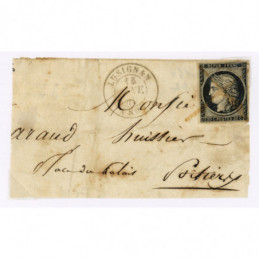 LUSIGNAN
REPUB. FRANC.
Monsie
huissier
Place du Palais
Poitiers